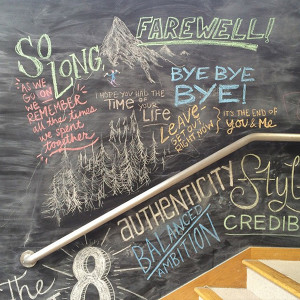 SO
LONG,
FAREWELL!
AS WE
GO ON
WE
REMEMBER
all the times
we spent
together
I HOPE YOU HAD THE
TIME OF YOUR
LIFE
BYE BYE
BYE!
LEAVE
GET OUT
RIGHT NOW
IT'S THE END OF
YOU & ME
AUTHENTICITY
BALANCED
AMBITION
Style
CREDIB
The
8